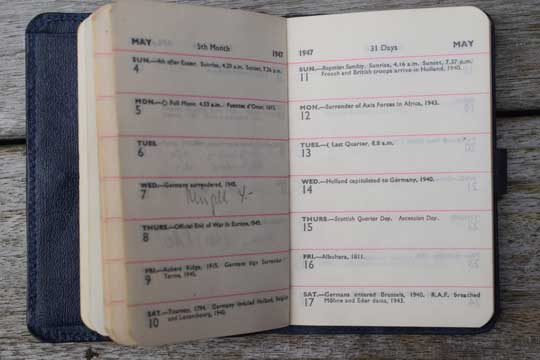 MAY 5th Month 1947
SUN.—4th after Easter. Sunrise, 4.29 a.m. Sunset, 7.26 p.m.
4
MON.—Full Moon, 4.53 a.m. Fuentes d'Onor, 1811.
5
TUES.
6
WED.—Germany surrendered, 1945.
7
THURS.—Official End of War in Europe, 1945.
8
FRI.—Aubers Ridge, 1915. Germans sign Surrender
Terms, 1945.
9
SAT.—Tournay, 1794. Germany invaded Holland, Belgium
and Luxembourg, 1940.
10
1947 31 Days MAY
SUN.—Rogation Sunday. Sunrise, 4.16 a.m. Sunset, 7.37 p.m.
French and British troops arrive in Holland, 1940.
11
MON.—Surrender of Axis Forces in Africa, 1943.
12
TUES.—☾ Last Quarter, 8.8 a.m.
13
WED.—Holland capitulated to Germany, 1940.
14
THURS.—Scottish Quarter Day. Ascension Day.
15
FRI.—Albuhera, 1811.
16
SAT.—Germans entered Brussels, 1940. R.A.F. breached
Möhne and Eder dams, 1943.
17